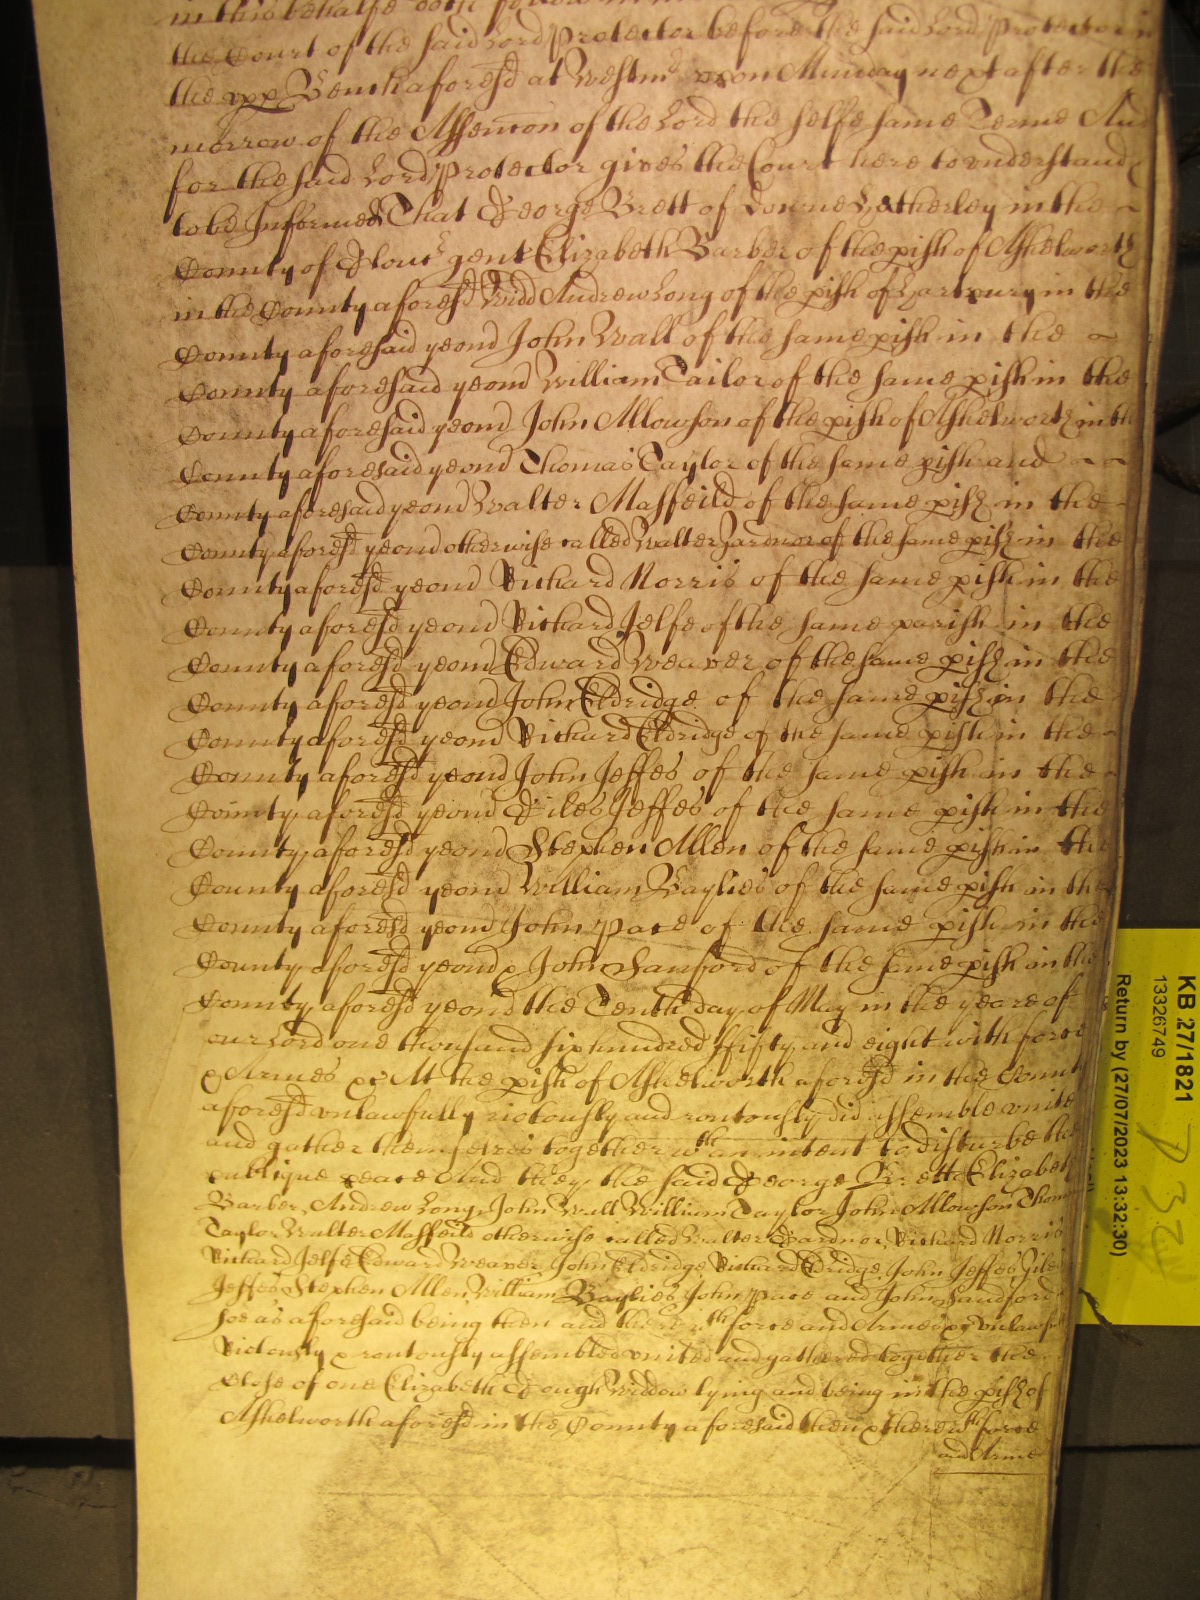 in this behalfe doth follow in
the Court of the said Lord Protector before the said Lord Protector in
the vpp Bench aforesd at Westmr vpon Munday next after the
morrow of the Assention of the Lord the selfe same Terme And
for the said Lord Protector gives the Court here to vnderstand
to be Informed That George Brett of Downe Hatherley in the
County of Glouc gent Elizabeth Barber of the pish of Ashelworth
in the County aforesd Widd Andrew Long of the pish of Hartpury in the
County aforesaid yeom John Wall of the same pish in the
County aforesaid yeom William Tailor of the same pish in the
County aforesaid yeom John Allowson of the pish of Ashelworth in the
County aforesaid yeom Thomas Taylor of the same pish and
County aforesaid yeom Walter Maffeild of the same pish in the
County aforesd yeom otherwise called Walter Gardnor of the same pish in the
County aforesd yeom Richard Norris of the same pish in the
County aforesd yeom Richard Jelfe of the same parish in the
County aforesd yeom Edward Weaver of the same pish in the
County aforesd yeom John Eldridge of the same pish in the
County aforesd yeom Richard Eldridge of the same pish in the
County aforesd yeom John Jeffes of the same pish in the
County aforesd yeom Giles Jeffes of the same pish in the
County aforesd yeom Stephen Allen of the same pish in the
County aforesd yeom William Baylies of the same pish in the
County aforesd yeom John Pace of the same pish in the
County aforesd yeom & John Sanford of the same pish in the
County aforesd yeom the Tenth day of May in the yeare of
our Lord one thousand six hundred ffifty and eight with force
& Armes &c At the pish of Ashelworth aforesd in the County
aforesd vnlawfully riotously and routously did assemble vnite
and gather themselves together wth an intent to disturbe the
publique peace And they the said George Brett Elizabeth
Barber Andrew Long John Wall William Taylor John Allowson Thomas
Taylor Walter Maffeild otherwise called Walter Gardnor Richard Norris
Richard Jelfe Edward Weaver John Eldridge Richard Eldridge John Jeffes Giles
Jeffes Stephen Allen William Baylies John Pace and John Sandford
soe as aforesaid being then and there wth force and Armes &c vnlawfully
Riotously & routously assembled vnited and gathered together the
Close of one Elizabeth Gough Widdow lying and being in the pish of
Ashelworth aforesd in the County aforesaid then & there wth force
and Arme
KB 27/1821
13326749
Return by (27/07/2023 13:32:30)